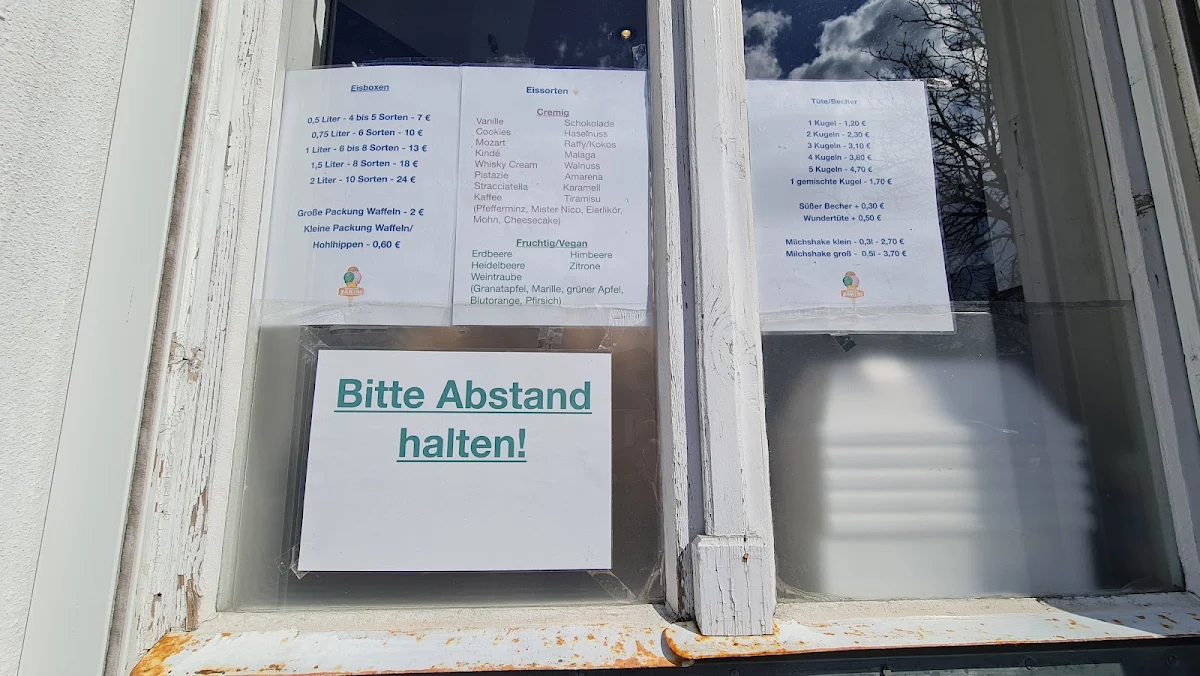 Eisboxen
0,5 Liter - 4 bis 5 Sorten - 7 €
0,75 Liter - 6 Sorten - 10 €
1 Liter - 6 bis 8 Sorten - 13 €
1,5 Liter - 8 Sorten - 18 €
2 Liter - 10 Sorten - 24 €
Große Packung Waffeln - 2 €
Kleine Packung Waffeln/
Hohlhippen - 0,60 €
Eissorten
Cremig
Vanille Schokolade
Cookies Haselnuss
Mozart Raffy/Kokos
Kindé Malaga
Whisky Cream Walnuss
Pistazie Amarena
Stracciatella Karamell
Kaffee Tiramisu
(Pfefferminz, Mister Nico, Eierlikör,
Mohn, Cheesecake)
Fruchtig/Vegan
Erdbeere Himbeere
Heidelbeere Zitrone
Weintraube
(Granatapfel, Marille, grüner Apfel,
Blutorange, Pfirsich)
Tüte/Becher
1 Kugel - 1,20 €
2 Kugeln - 2,30 €
3 Kugeln - 3,10 €
4 Kugeln - 3,80 €
5 Kugeln - 4,70 €
1 gemischte Kugel - 1,70 €
Süßer Becher + 0,30 €
Wundertüte + 0,50 €
Milchshake klein - 0,3l - 2,70 €
Milchshake groß - 0,5l - 3,70 €
Bitte Abstand
halten!